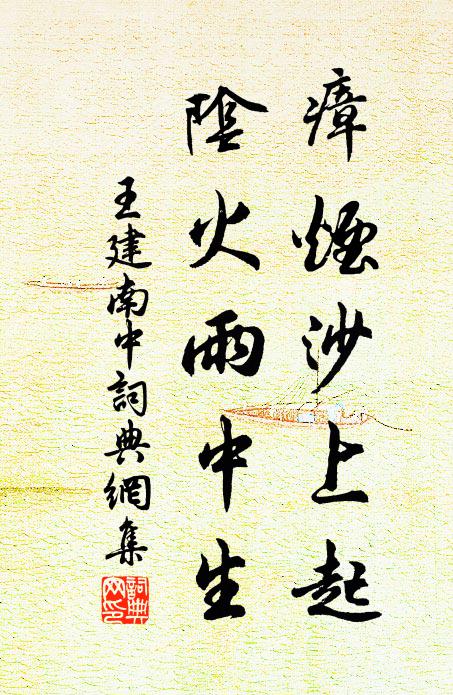 瘴煙沙上起
陰火雨中生
王建南中詞典網集
詞典網印